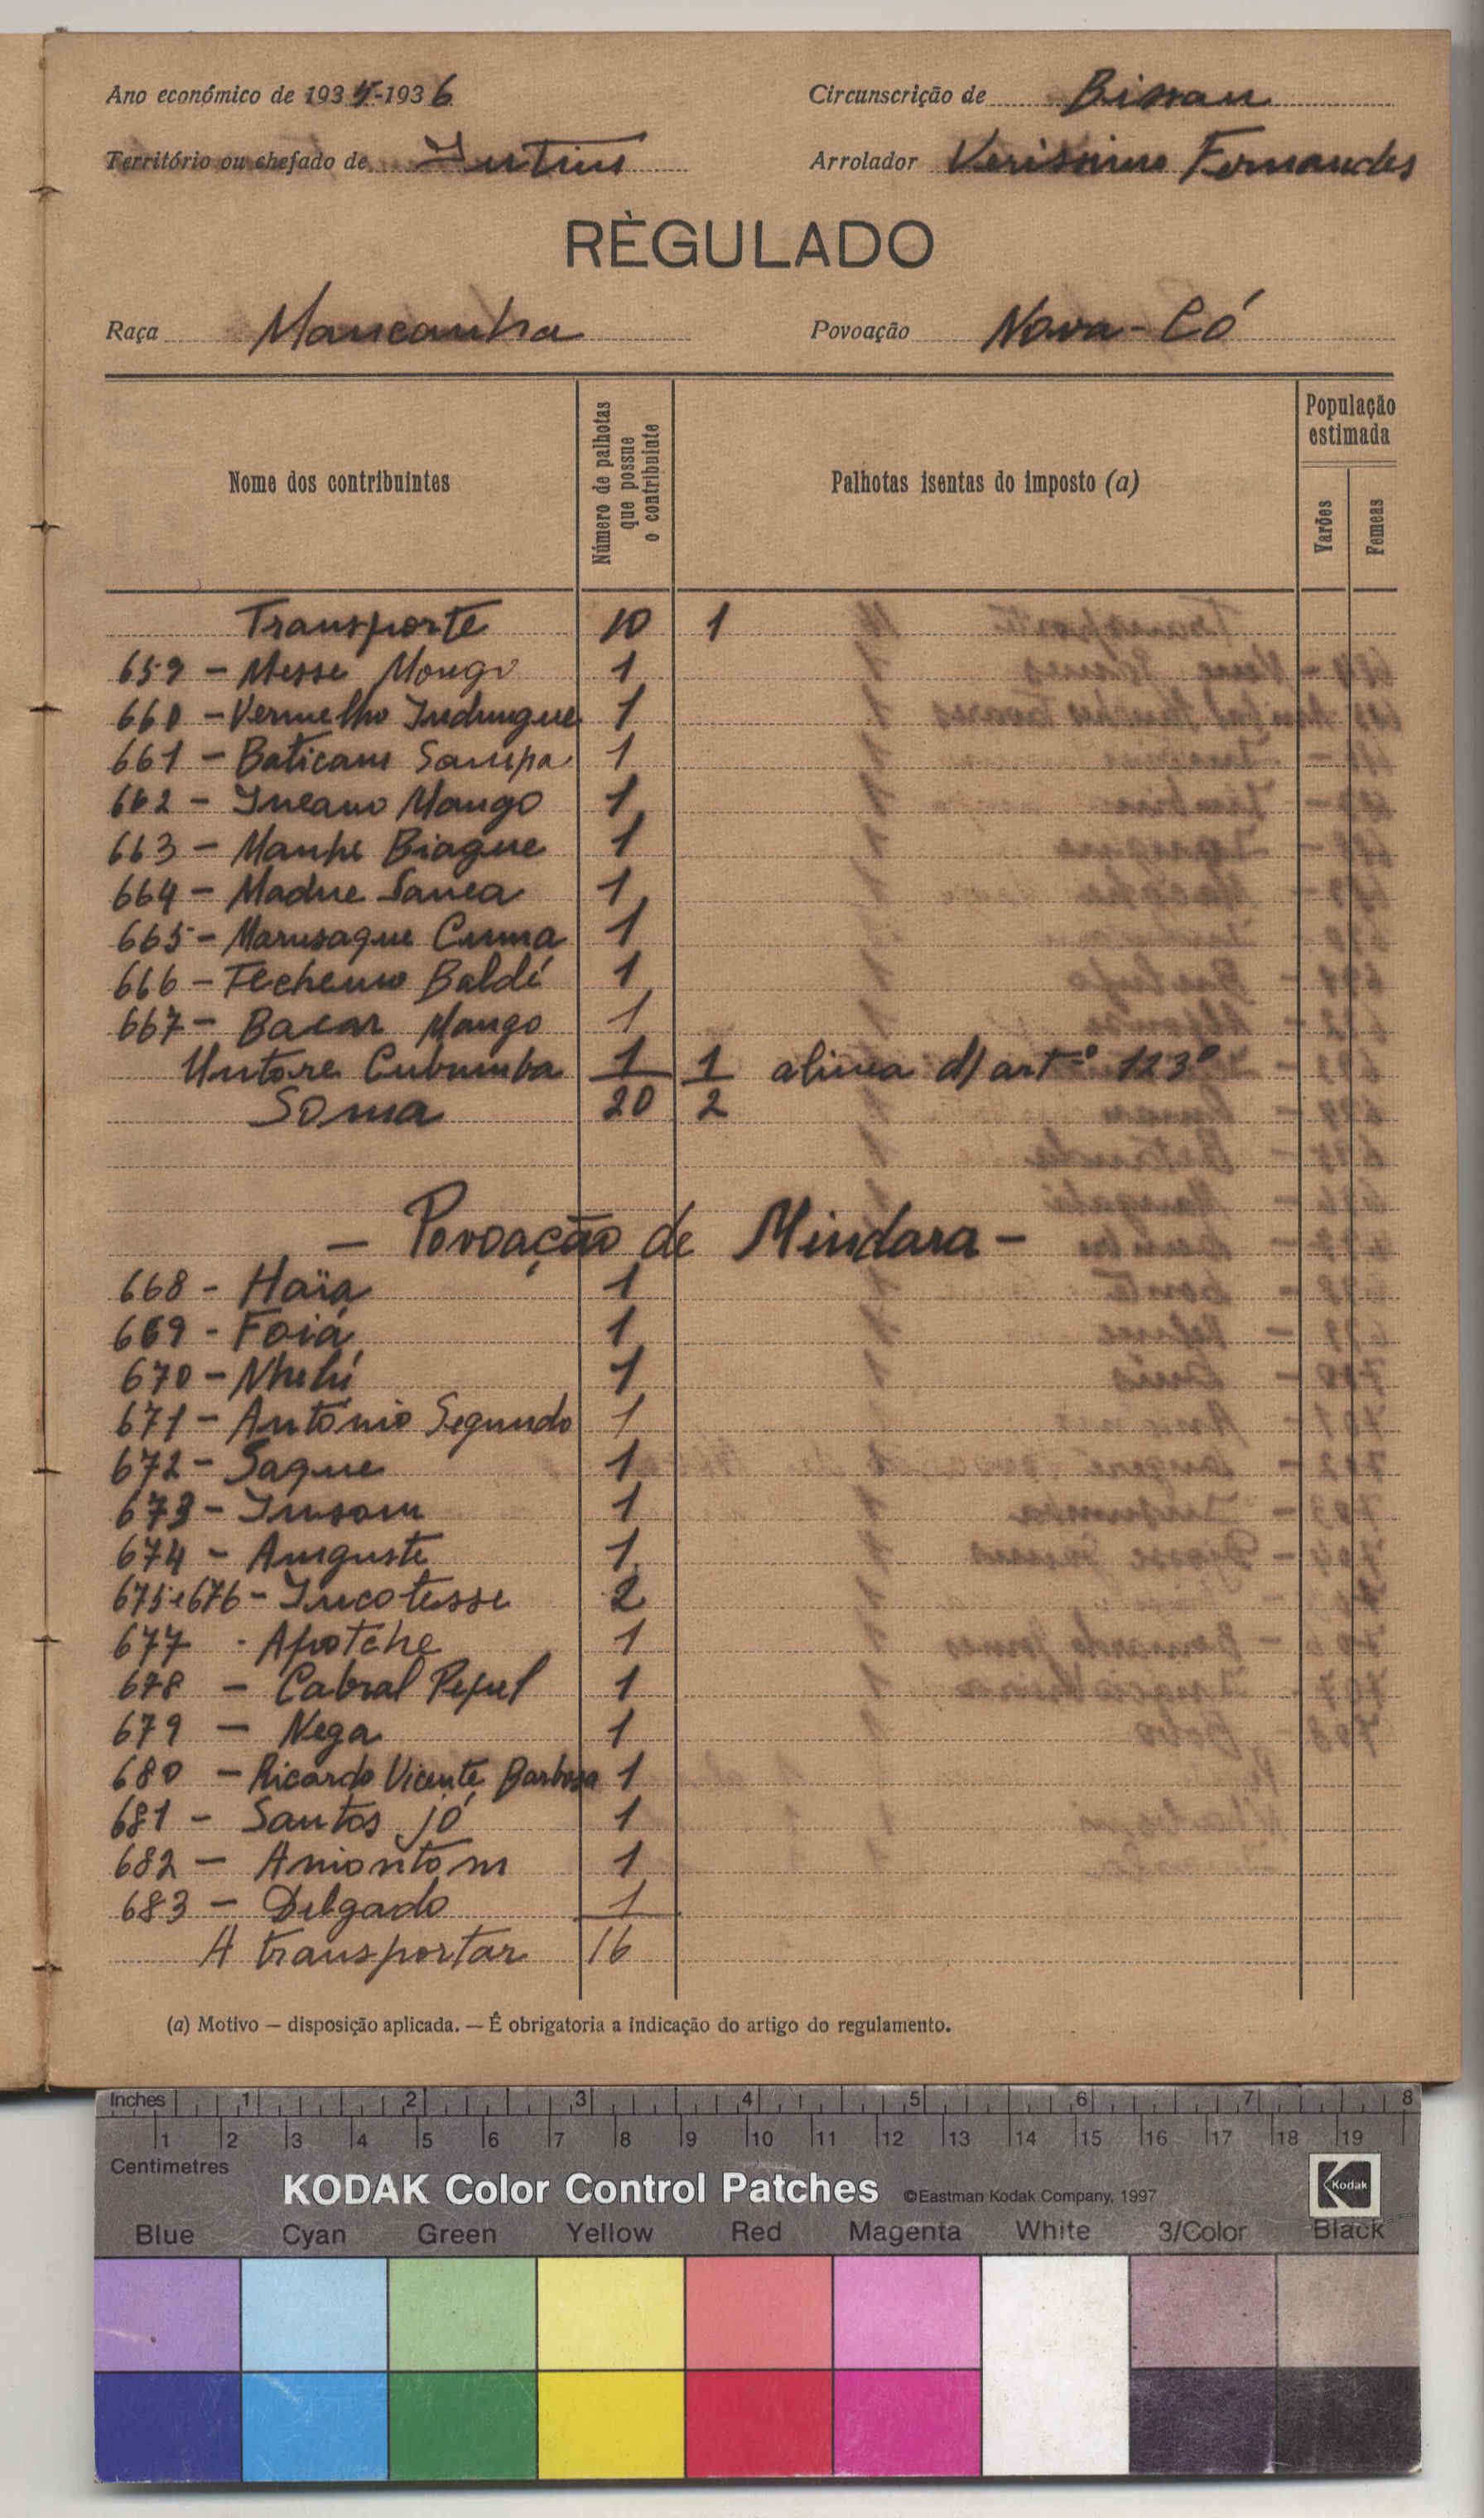 Ano económico de 1935-1936
Circunscrição de Bissau
Território ou chefado de Intim
Arrolador Verissimo Fernandes
RÈGULADO
Raça Mancanha
Povoação Nova-Có
Nome dos contribuintes
Número de palhotas que possue o contribuinte
Palhotas isentas do imposto (a)
População estimada
Varões
Femeas
Transporte 10 1
659 - Messe Mongo 1
660 - Vermelho Indungue 1
661 - Baticam Sampa 1
662 - Incano Mango 1
663 - Manhe Biague 1
664 - Madue Sanca 1
665 - Marusaque Cuma 1
666 - Techemo Baldé 1
667 - Bacar Mango 1
Untore Cubumba 1 1 alinea d) artº 123º
Soma 20 2
- Povoação de Mindara -
668 - Haïa 1
669 - Foiá 1
670 - Nhelú 1
671 - António Segundo 1
672 - Saque 1
673 - Insom 1
674 - Auguste 1
675 e 676 - Incotesse 2
677 - Apotche 1
678 - Cabral Pepel 1
679 - Nega 1
680 - Ricardo Vicente Barbosa 1
681 - Santos jó 1
682 - Aniontom 1
683 - Delgado 1
A transportar 16
(a) Motivo — disposição aplicada. — É obrigatoria a indicação do artigo do regulamento.
Inches 1 2 3 4 5 6 7 8
1 2 3 4 5 6 7 8 9 10 11 12 13 14 15 16 17 18 19
Centimetres
KODAK Color Control Patches ©Eastman Kodak Company, 1997 Kodak
Blue Cyan Green Yellow Red Magenta White 3/Color Black